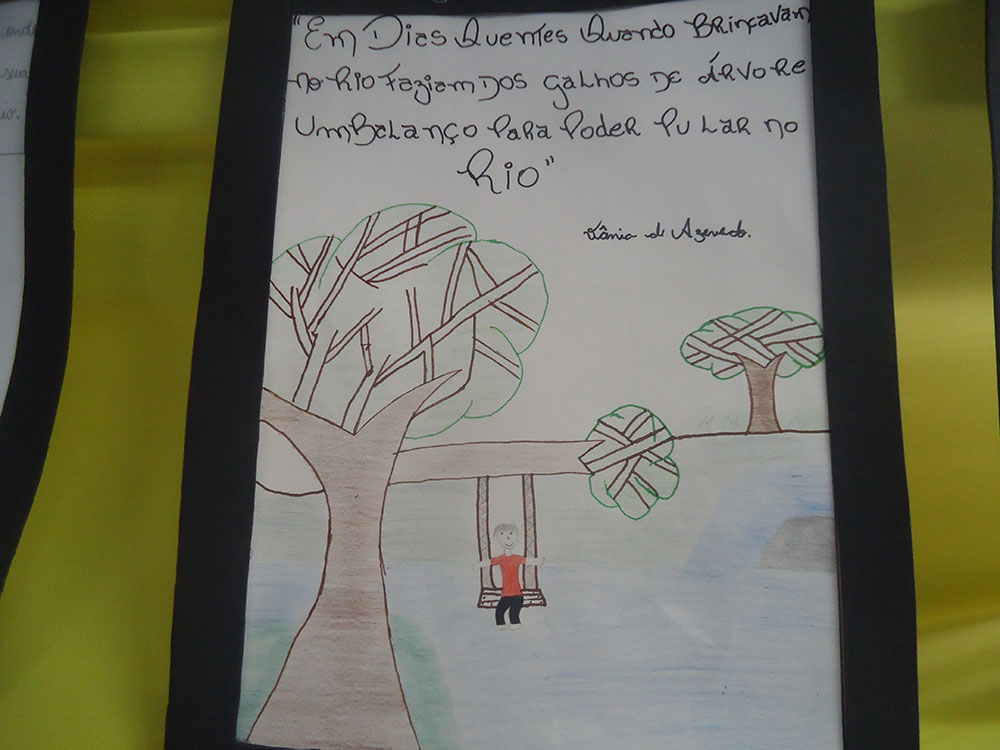 "Em Dias Quentes Quando Brincavam
no Rio Faziam Dos galhos De Árvore
Um Balanço Para Poder Pular no
Rio"
Vânia de Azevedo.
sua